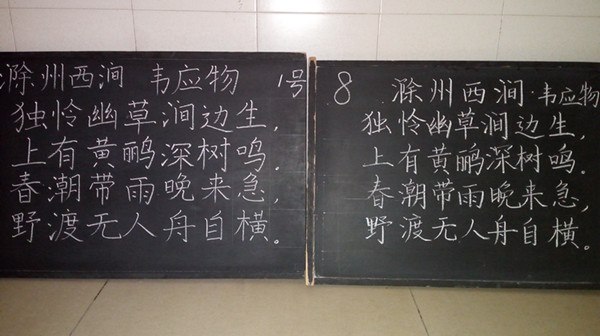 滁州西涧 韦应物 1号
独怜幽草涧边生，
上有黄鹂深树鸣。
春潮带雨晚来急，
野渡无人舟自横。
8 滁州西涧·韦应物
独怜幽草涧边生，
上有黄鹂深树鸣。
春潮带雨晚来急，
野渡无人舟自横。